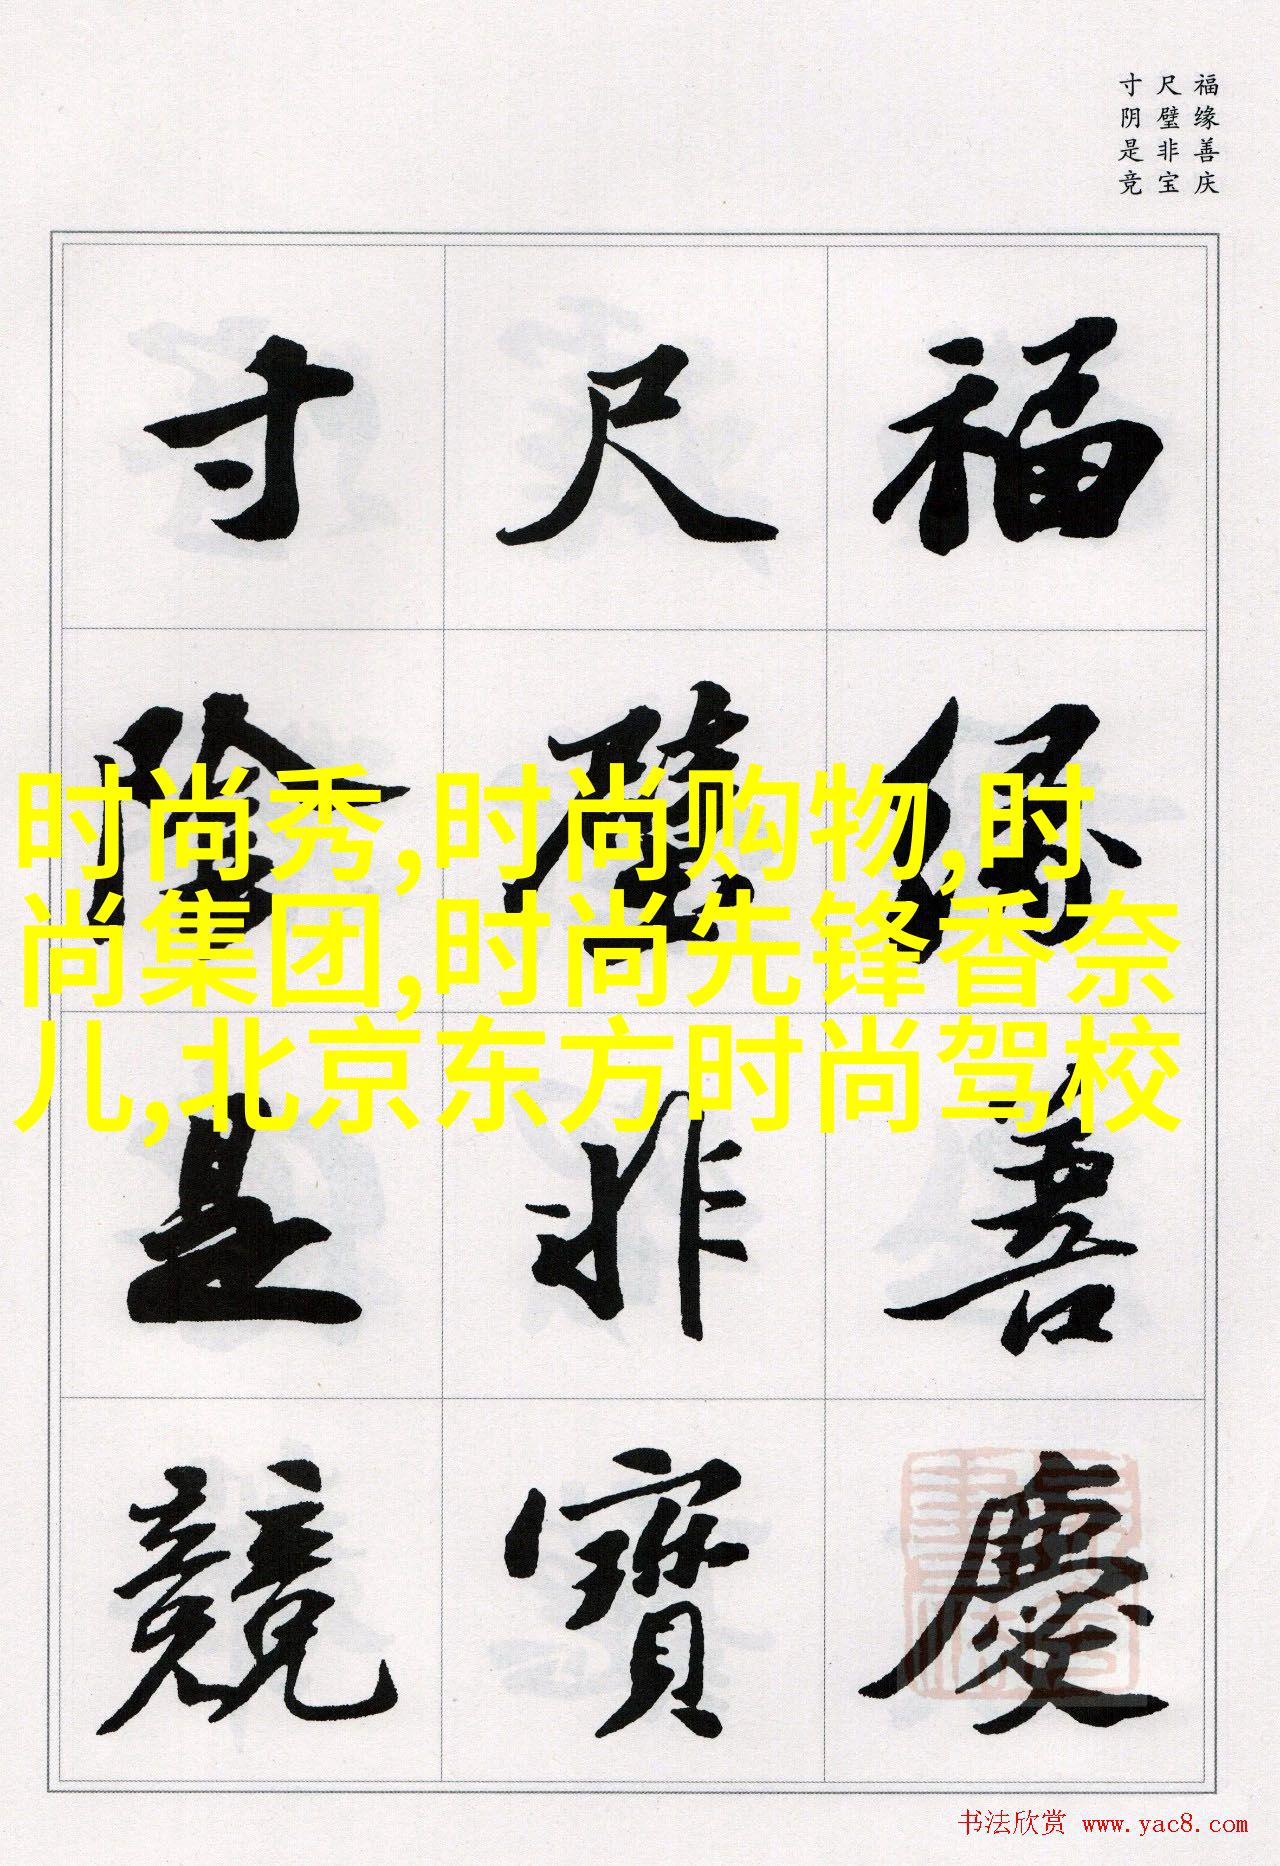 福缘善庆
尺璧非宝
寸阴是竞
福緣善慶
尺璧非寶
寸陰是競
时尚秀,时尚购物,时
尚集团,时尚先锋香奈
儿,北京东方时尚驾校
书法欣赏 www.yac8.com